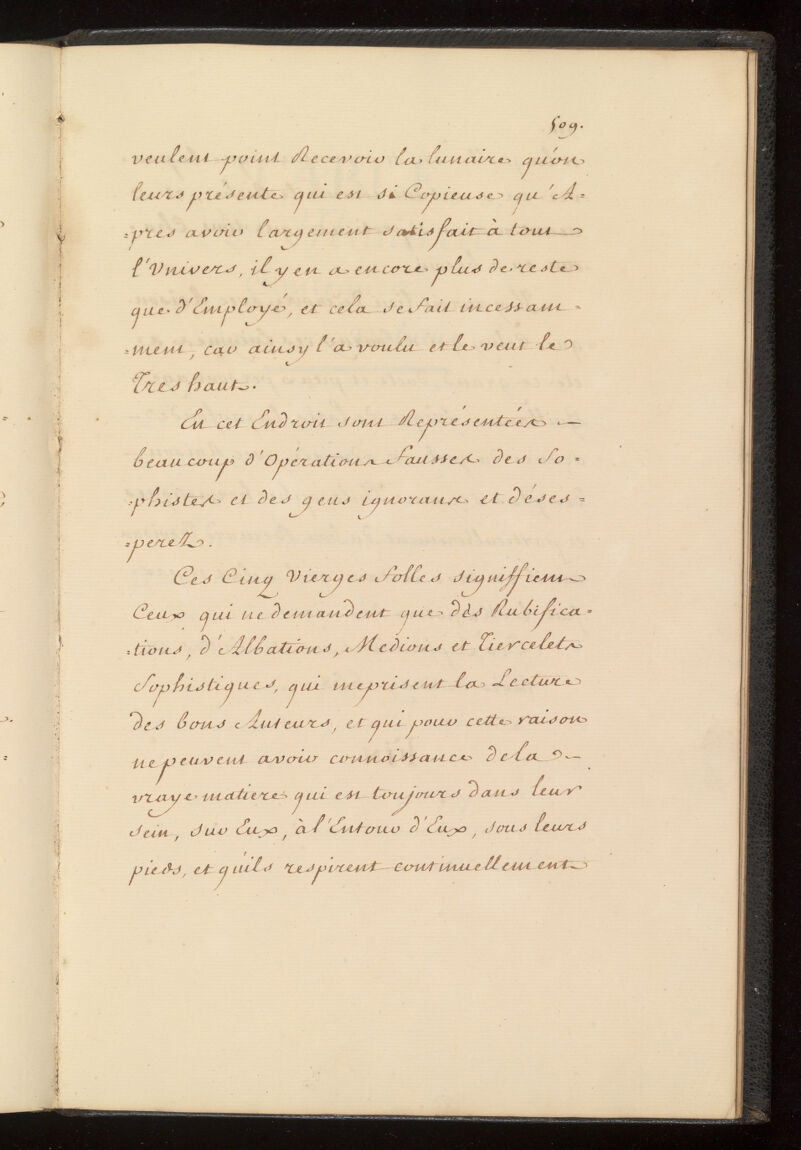 509.
veulent point Recevoir la lunaire qu'on
leurs présente qui est si Copieuse qu'A=
=près avoir largement satisfait à tout
l'Univers, il y en a encore plus de reste
que d'Employé, et cela se fait incessam=
=ment, car ainsy l'a voulu et le veut le
Tres haut.
En cet Endroit sont Représentées
beaucoup d'Opérations fausses des So=
=phistes et des gens ignorans et déses=
=perez.
Ces Cinq Vierges folles signiffient
Ceux qui ne demandent que des Rubifica=
=tions, d'Albations, Medions et Tiercelets
Sophistiques, qui meprisent la Lecture
des bons Auteurs, et qui pour cette raison
ne peuvent avoir connoissance de la
vraye matiere qui est toujours dans leur
sein, sur Eux, à l'Entour d'Eux, sous leurs
pieds, et qu'ils respirent continuellement